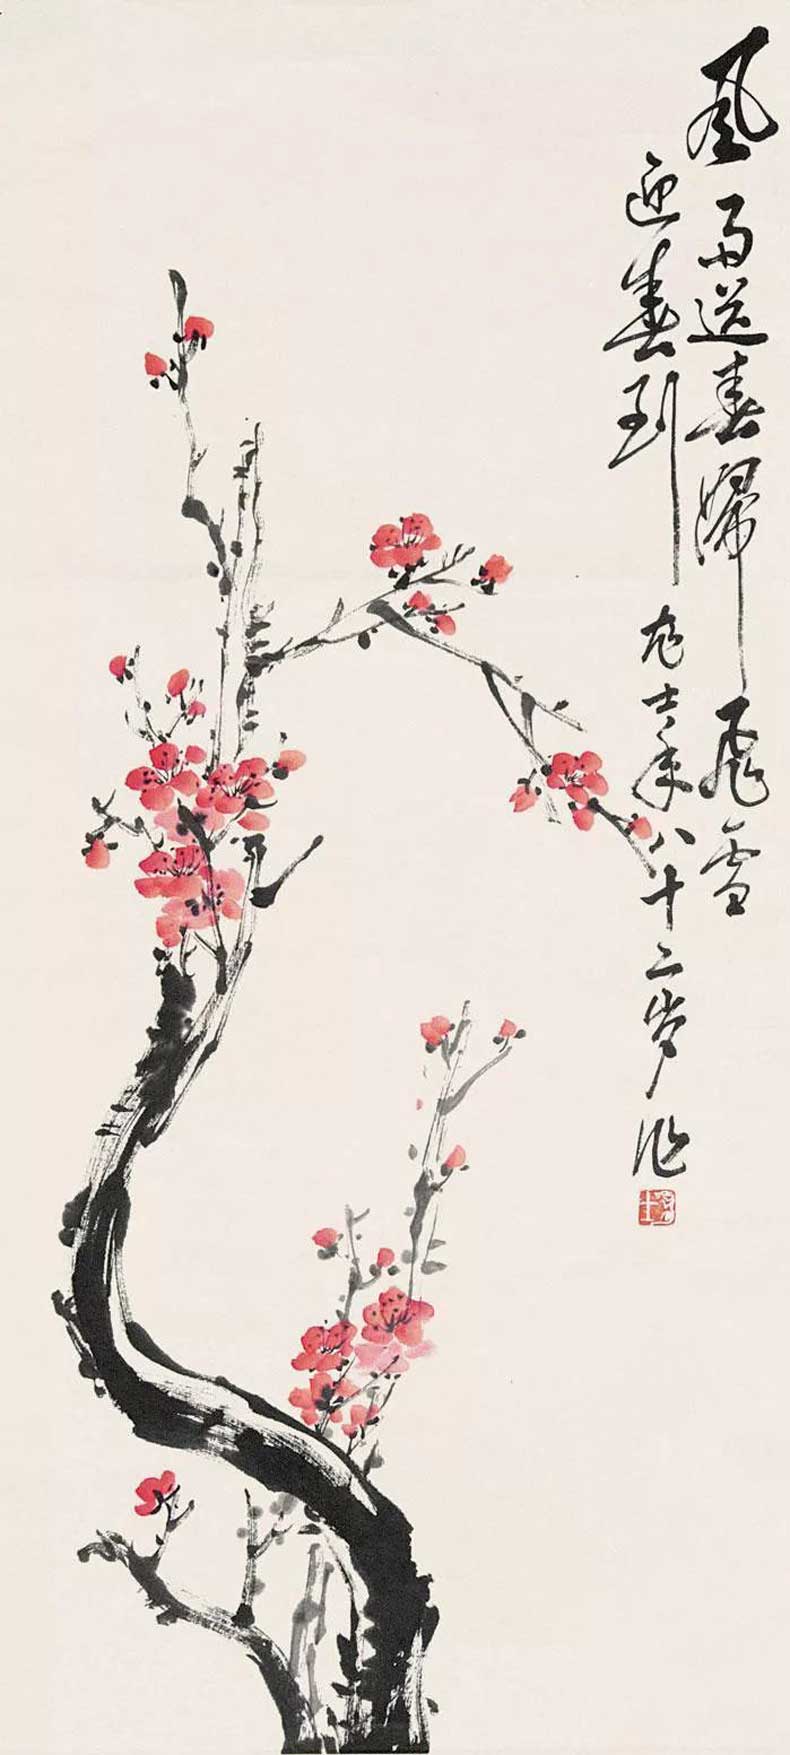 風雨送春歸飛雪
迎春到
年八十二岁作